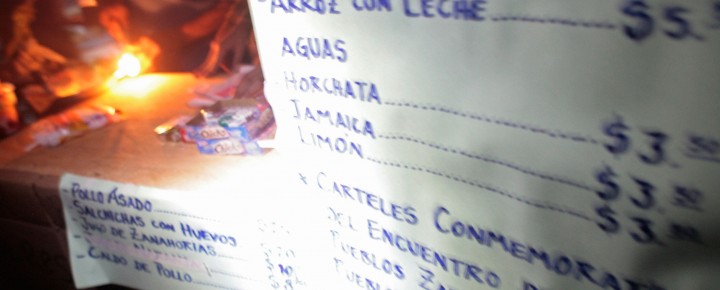 ARROZ CON LECHE $5.
AGUAS
- HORCHATA $3.50
JAMAICA $3.50
LIMÓN $3.50
* CARTELES CONMEMORATI
DEL ENCUENTRO D
PUEBLOS ZA
- POLLO ASADO
SALCHICHAS CON HUEVOS
- JUGO DE ZANAHORIAS
- CALDO DE POLLO